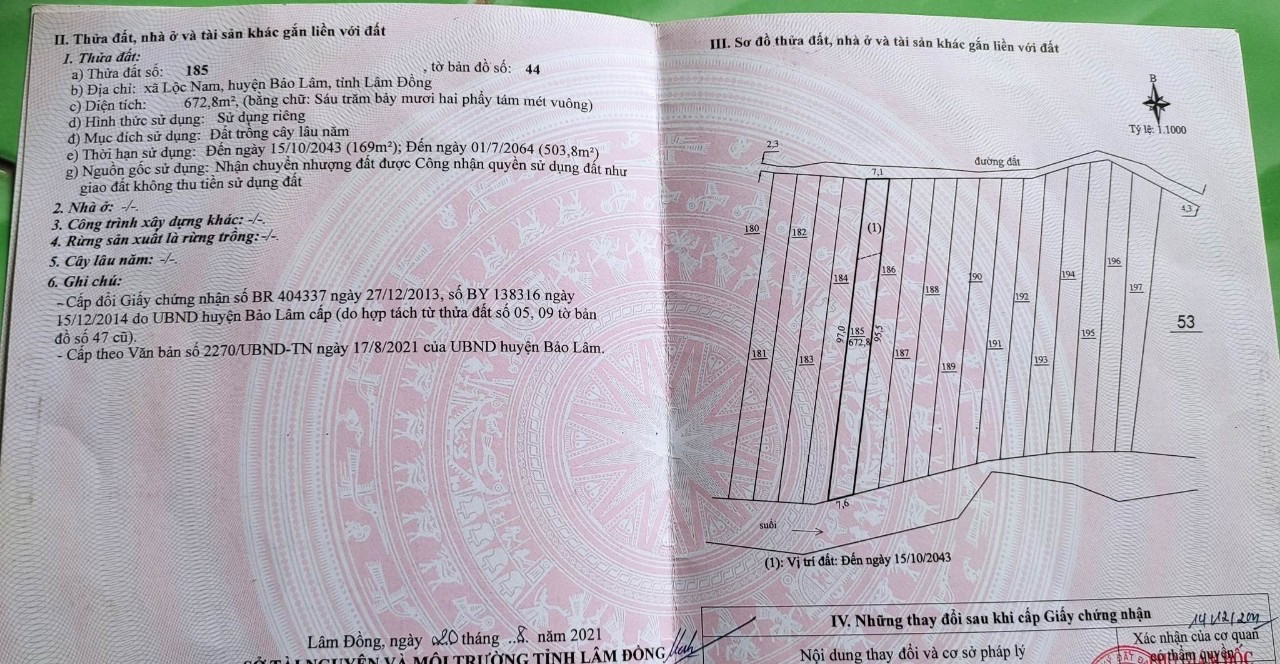 II. Thửa đất, nhà ở và tài sản khác gắn liền với đất
1. Thửa đất:
a) Thửa đất số: 185 , tờ bản đồ số: 44
b) Địa chỉ: xã Lộc Nam, huyện Bảo Lâm, tỉnh Lâm Đồng
c) Diện tích: 672,8m², (bằng chữ: Sáu trăm bảy mươi hai phẩy tám mét vuông)
d) Hình thức sử dụng: Sử dụng riêng
đ) Mục đích sử dụng: Đất trồng cây lâu năm
e) Thời hạn sử dụng: Đến ngày 15/10/2043 (169m²); Đến ngày 01/7/2064 (503,8m²)
g) Nguồn gốc sử dụng: Nhận chuyển nhượng đất được Công nhận quyền sử dụng đất như
giao đất không thu tiền sử dụng đất
2. Nhà ở: -/-.
3. Công trình xây dựng khác: -/-.
4. Rừng sản xuất là rừng trồng: -/-.
5. Cây lâu năm: -/-.
6. Ghi chú:
- Cấp đổi Giấy chứng nhận số BR 404337 ngày 27/12/2013, số BY 138316 ngày
15/12/2014 do UBND huyện Bảo Lâm cấp (do hợp tách từ thửa đất số 05, 09 tờ bản
đồ số 47 cũ).
- Cấp theo Văn bản số 2270/UBND-TN ngày 17/8/2021 của UBND huyện Bảo Lâm.
Lâm Đồng, ngày 20 tháng 8 năm 2021
SỞ TÀI NGUYÊN VÀ MÔI TRƯỜNG TỈNH LÂM ĐỒNG
III. Sơ đồ thửa đất, nhà ở và tài sản khác gắn liền với đất
B
Tỷ lệ: 1:1000
2,3
đường đất
7,1
4,3
180
182
(1)
184
186
188
190
192
194
196
197
53
97,0
185
672,8
95,5
181
183
187
189
191
193
195
7,6
suối
(1): Vị trí đất: Đến ngày 15/10/2043
IV. Những thay đổi sau khi cấp Giấy chứng nhận
Nội dung thay đổi và cơ sở pháp lý
Xác nhận của cơ quan
có thẩm quyền